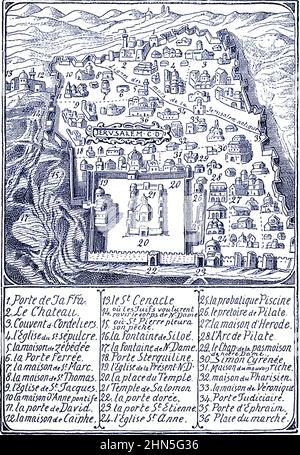 JERUSALEM C D
1. Porte de Jaffa
2. Le Chateau.
3. Couvent de Cordeliers.
4. l'Eglise du St sépulcre.
5. la maison de Zébédée
6. la Porte Ferrée.
7. la maison de St Marc.
8. la maison de St Thomas.
9. l'Eglise de St Jacques.
10. la maison d'Anne pontife
11. la porte de David.
12. la maison de Caïphe.
13. le St Cenacle
14. où les Juifs voulurent
ravir le corps de N. Dame
15. où St Pierre pleura
son péché.
16. la Fontaine de Siloé.
17. la fontaine de N. Dame
18. Porte Sterquiline.
19. l'Eglise de la Présent. N. D.
20. la place du Temple.
21. Temple de Salomon
22. la porte dorée.
23. la porte St Etienne
24. l'Eglise St Anne.
25. la probatique Piscine
26. le pretoire de Pilate.
27. la maison d'Herode.
28. l'Arc de Pilate
29. le Chap. du pasmoison
de notre Dame
30. Simon Cyrénée.
31. Maison du mauvais riche.
32. maison du Pharisien.
33. la maison de Véronique
34. Porte Judiciaire.
35. Porte d'Ephraim.
36. Place du marché
alamy
Image ID: 2HN5G36
www.alamy.com